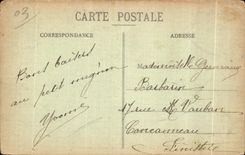 03
CARTE POSTALE
CORRESPONDANCE
ADRESSE
Bons baisers
au petit mignon
Yvonne
Mademoiselle Germaine
Barbarin
17 rue Vauban
Concarneau
Finistère